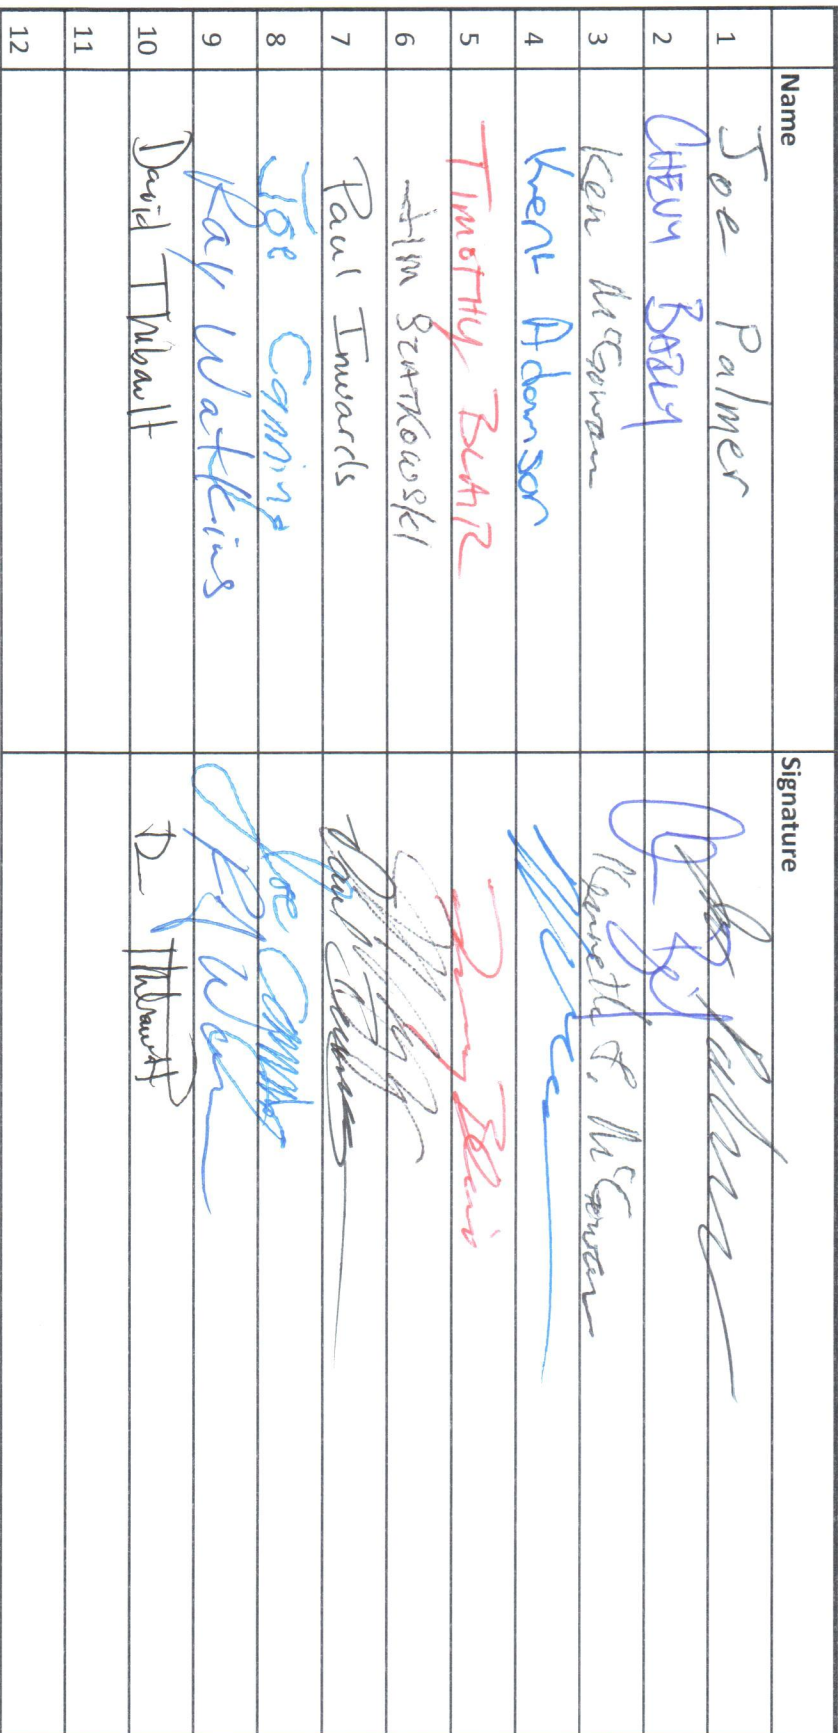 Name Signature
1 Joe Palmer Joe Palmer
2 CHEVY BAZLY
3 Ken McGowan Kenneth P. McGowan
4 Kent Adamson
5 TIMOTHY BLAIR Blair
6 Jim SZATKOWSKI
7 Paul Inwards Paul
8 Joe Canning Joe Canning
9 Ray Watkins
10 David Thibault D Thibault
11
12